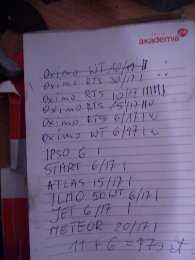 akademia
OXIMO WT
OXIMO RTS 30/17 |
OXIMO RTS 10/17 |||||
OXIMO RTS 15/17 ||
OXIMO RTS 6/17 |
OXIMO WT 6/17 |
IPSO 6 |
START 6/17 |
ATLAS 15/17 |
ILMO 50WT 6/17 |
JET 6/17 |
METEOR 20/17 |
11 + 6 = 17